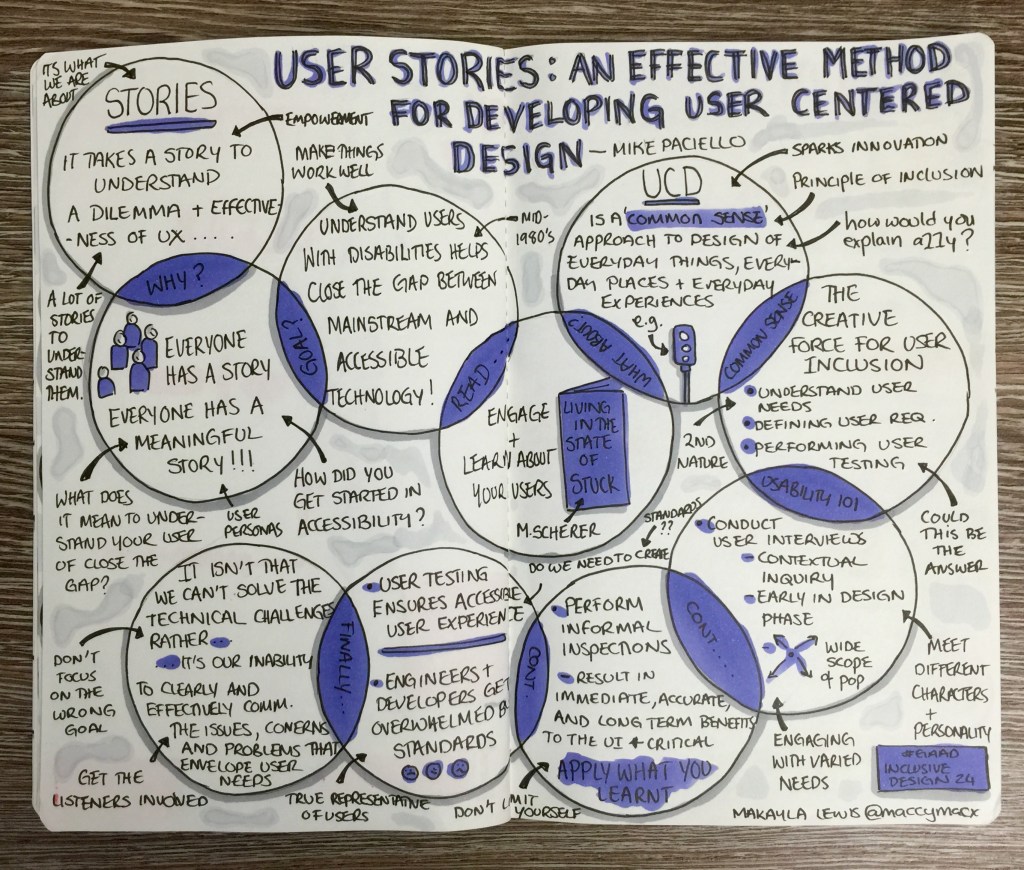 USER STORIES: AN EFFECTIVE METHOD
FOR DEVELOPING USER CENTERED
DESIGN — MIKE PACIELLO
ITS WHAT
WE ARE
ABOUT
STORIES
EMPOWERMENT
IT TAKES A STORY TO
UNDERSTAND
A DILEMMA + EFFECTIVE-
-NESS OF UX ....
WHY?
A LOT OF
STORIES
TO
UNDER-
STAND
THEM.
EVERYONE
HAS A STORY
EVERYONE HAS A
MEANINGFUL
STORY!!!
WHAT DOES
IT MEAN TO UNDER-
STAND YOUR USER
OF CLOSE THE
GAP?
USER
PERSONAS
HOW DID YOU
GET STARTED IN
ACCESSIBILITY?
GOAL?
MAKE THINGS
WORK WELL
UNDERSTAND USERS
WITH DISABILITIES HELPS
CLOSE THE GAP BETWEEN
MAINSTREAM AND
ACCESSIBLE
TECHNOLOGY!
MID-
1980'S
READ...
ENGAGE
+
LEARN ABOUT
YOUR USERS
LIVING
IN THE
STATE
OF
STUCK
M.SCHERER
WHAT ABOUT?
UCD
IS A 'COMMON SENSE'
APPROACH TO DESIGN OF
EVERYDAY THINGS, EVERY-
DAY PLACES + EVERYDAY
EXPERIENCES
e.g.
SPARKS INNOVATION
PRINCIPLE OF INCLUSION
how would you
explain a11y?
COMMON SENSE
THE
CREATIVE
FORCE FOR USER
INCLUSION
UNDERSTAND USER
NEEDS
DEFINING USER REQ.
PERFORMING USER
TESTING
2ND
NATURE
COULD
THIS BE
THE
ANSWER
USABILITY 101
CONDUCT
USER INTERVIEWS
- CONTEXTUAL
INQUIRY
- EARLY IN DESIGN
PHASE
WIDE
SCOPE
of POP
MEET
DIFFERENT
CHARACTERS
+
PERSONALITY
ENGAGING
WITH VARIED
NEEDS
CONT....
STANDARDS
??
DO WE NEED TO CREATE
PERFORM
INFORMAL
INSPECTIONS
- RESULT IN
IMMEDIATE, ACCURATE,
AND LONG TERM BENEFITS
TO THE UI + CRITICAL
APPLY WHAT YOU
LEARNT
CONT
USER TESTING
ENSURES ACCESSIBLE
USER EXPERIENCE
ENGINEERS +
DEVELOPERS GET
OVERWHELMED B
STANDARDS
DON'T IMIT YOURSELF
FINALLY...
IT ISN'T THAT
WE CAN'T SOLVE THE
TECHNICAL CHALLENGES
RATHER...
...IT'S OUR INABILITY
TO CLEARLY AND
EFFECTIVELY COMM.
THE ISSUES, CONERNS
AND PROBLEMS THAT
ENVELOPE USER
NEEDS
DON'T
FOCUS
ON THE
WRONG
GOAL
GET THE
LISTENERS INVOLVED
TRUE REPRESENTATIVE
OF USERS
#GAAD
INCLUSIVE
DESIGN 24
MAKAYLA LEWIS @maccymacx